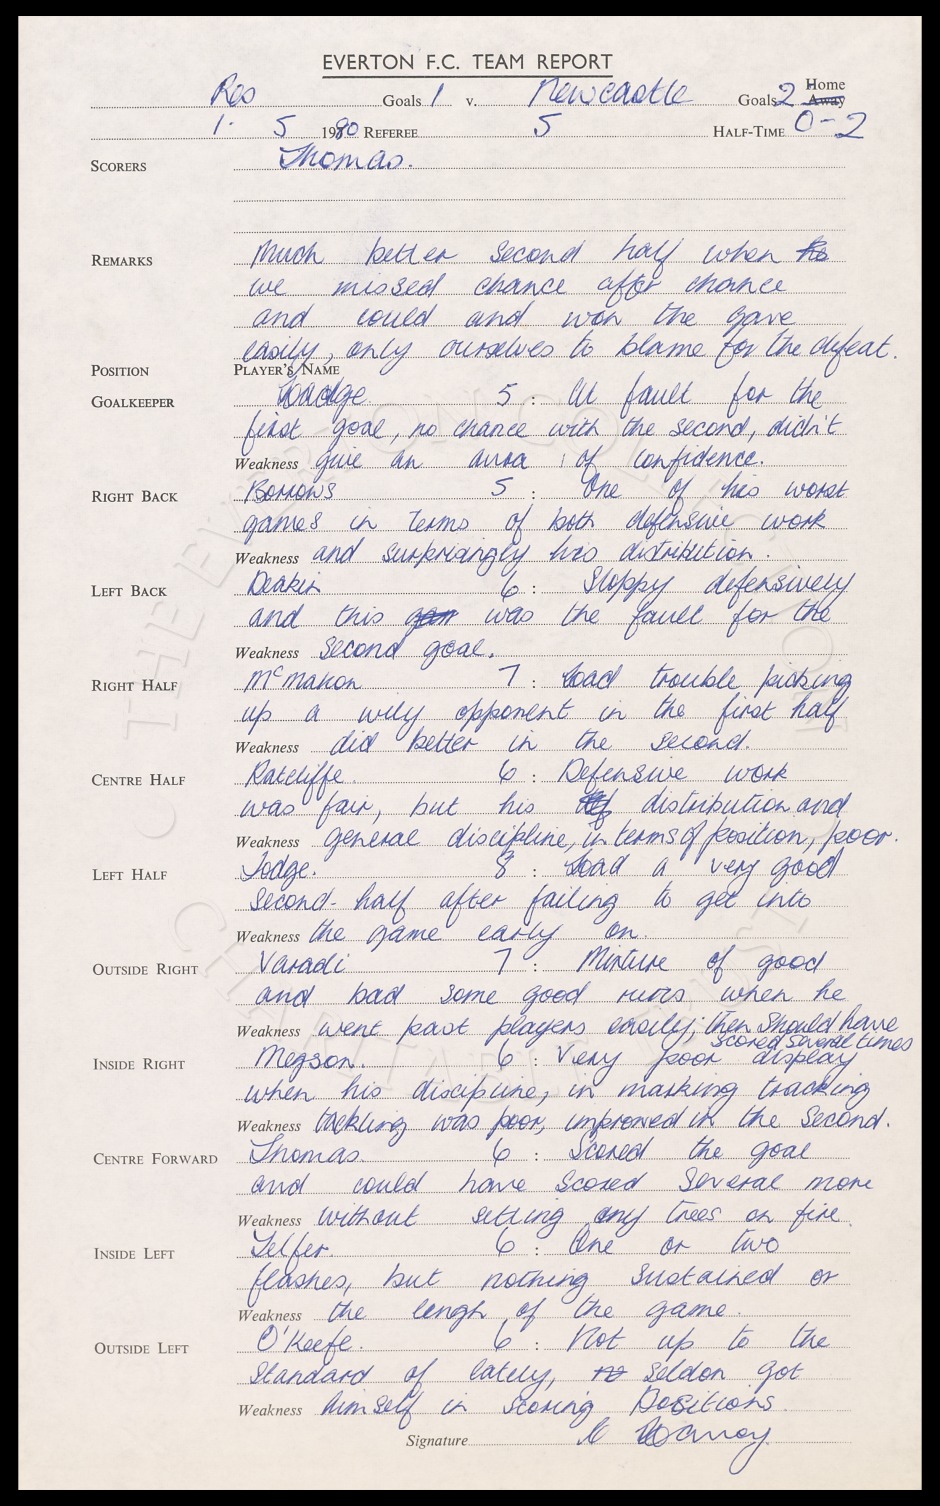 EVERTON F.C. TEAM REPORT
Res Goals 1 v. Newcastle Goals 2 Home Away
1. 5 1980 REFEREE 5 HALF-TIME 0-2
SCORERS Thomas.
REMARKS Much better second half when
we missed chance after chance
and could and won the gave
easily, only ourselves to blame for the defeat.
POSITION PLAYER'S NAME
GOALKEEPER Hodge 5 : At fault for the
first goal, no chance with the second, didn't
Weakness give an aura of confidence.
RIGHT BACK Borrows 5 : One of his worst
games in terms of both defensive work
Weakness and surprisingly his distribution.
LEFT BACK Deakin 6 : Sloppy defensively
and this was the fault for the
Weakness second goal.
RIGHT HALF McMahon 7 : Had trouble picking
up a wily opponent in the first half
Weakness did better in the second.
CENTRE HALF Ratcliffe. 6 : Defensive work
was fair, but his distribution and
Weakness general discipline, in terms of position, poor.
LEFT HALF Lodge. 8 : Had a very good
second-half after failing to get into
Weakness the game early on.
OUTSIDE RIGHT Varadi 7 : Mixture of good
and bad some good runs when he
Weakness went past players easily; then should have
scored several times
INSIDE RIGHT Megson. 6 : Very poor display
when his discipline, in marking tracking
Weakness tackling was poor, improved in the second.
CENTRE FORWARD Thomas 6 : Scored the goal
and could have scored several more
Weakness without setting any trees on fire
INSIDE LEFT Telfer. 6 : One or two
flashes, but nothing sustained or
Weakness the lengh of the game.
OUTSIDE LEFT O'Keefe. 6 : Not up to the
standard of lately, seldon got
Weakness himself in scoring positions.
Signature
THE EVERTON COLLECTION
CHARITABLE TRUST